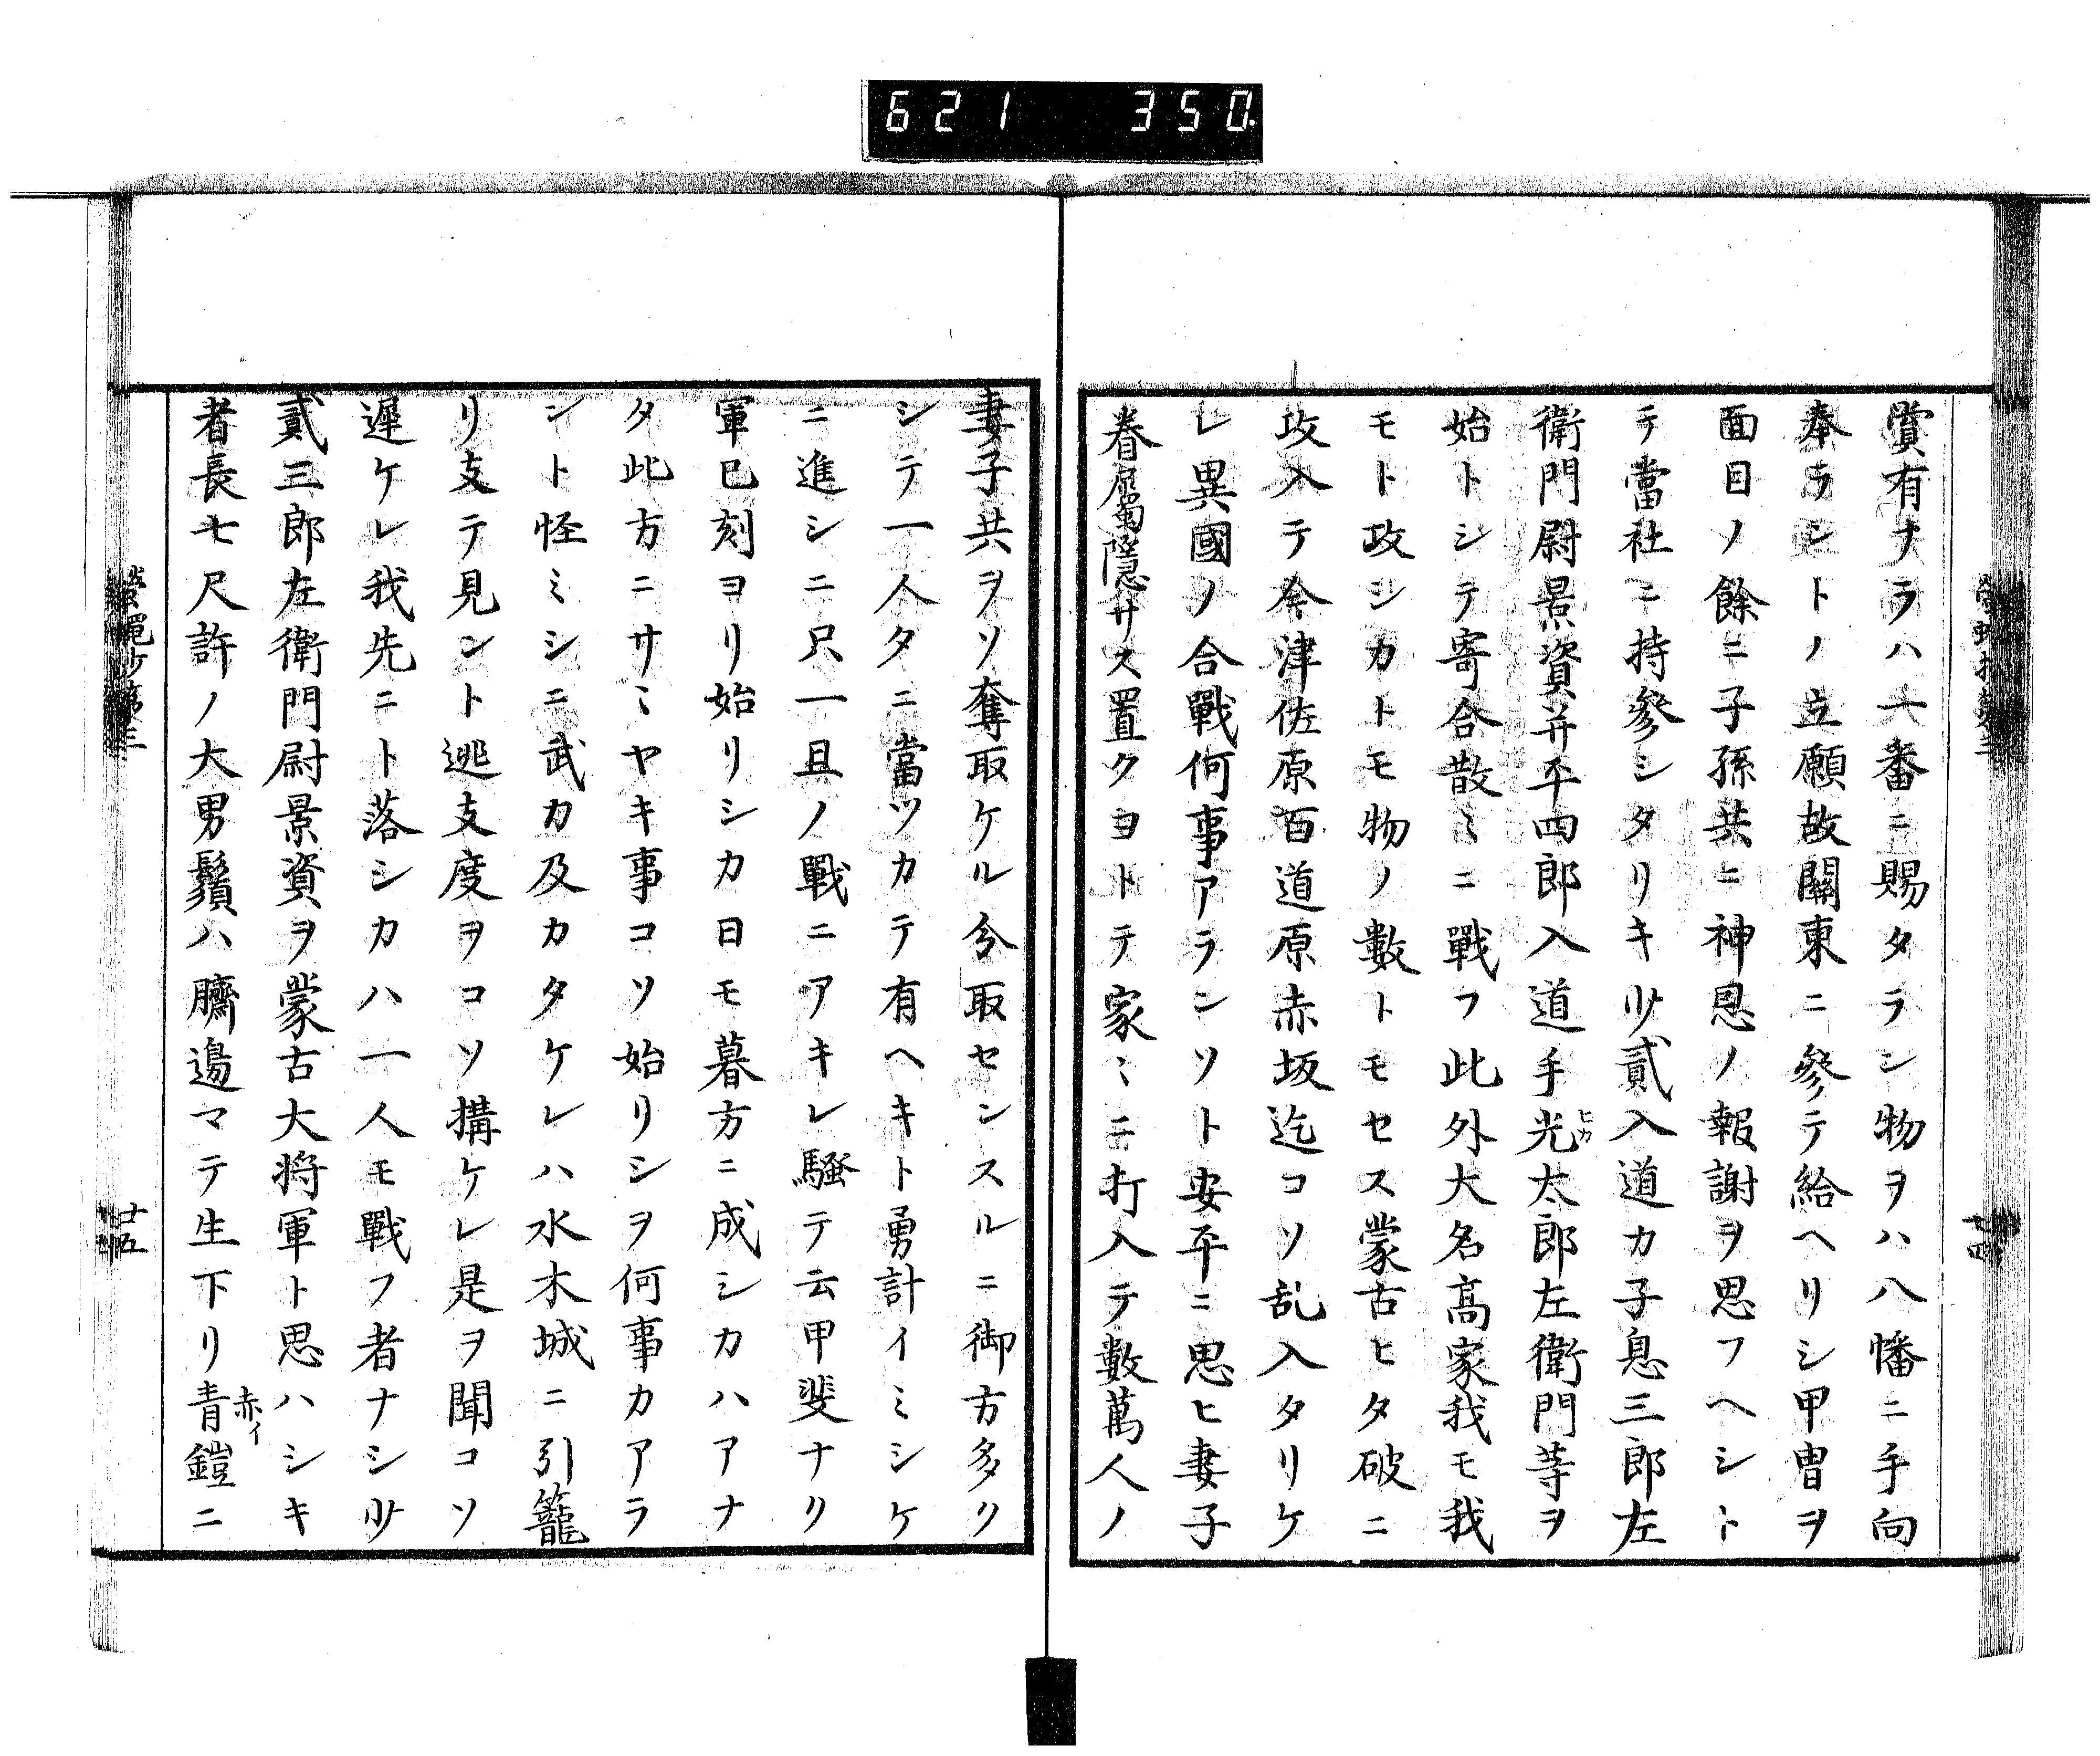 621 350
賞有ナラハ一番ニ賜タラン物ヲハ八幡ニ手向
奉ラントノ立願故關東ニ參テ給ヘリシ甲冑ヲ
面目ノ餘ニ子孫共ヒ神恩ノ報謝ヲ思フヘシト
テ當社ニ持參シタリキ少貳入道カ子息三郎左
衛門尉景資并平四郎入道手光太郎左衛門等ヲ
ヒカ
始トシテ寄合散ミニ戰フ此外大名髙家我モ我
モト政シカトモ物ノ數トモセス蒙古ヒタ破ニ
攻入テ今津佐原百道原赤坂迄コソ乱入タリケ
レ異國ノ合戰何事アランソト安平ニ思ヒ妻子
眷屬隱サス置クヨトテ家ミニ打入テ數萬人ノ
十四
妻子共ヲソ奪取ケル分取センスルニ御方多ク
シテ一人タニ當ツカテ有ヘキト勇計イミシケ
ニ進シニ只一且ノ戰ニアキレ騒テ云甲斐ナリ
軍巳刻ヨリ始リシカ日モ暮方ニ成シカハアナ
タ此方ニサミヤキ事コソ始リシヲ何事カアラ
ント怪ミシニ武力及カタケレハ水木城ニ引籠
リ支テ見ント逃支度ヲコソ構ケレ是ヲ聞コソ
遲ケレ我先ニト落シカハ一人モ戰フ者ナシ少
貳三郎左衛門尉景資ヲ蒙古大将軍ト思ハシキ
者長七尺許ノ大男鬚ハ臍邉マテ生下リ青鎧ニ
赤イ
螢蠅抄第三
十五